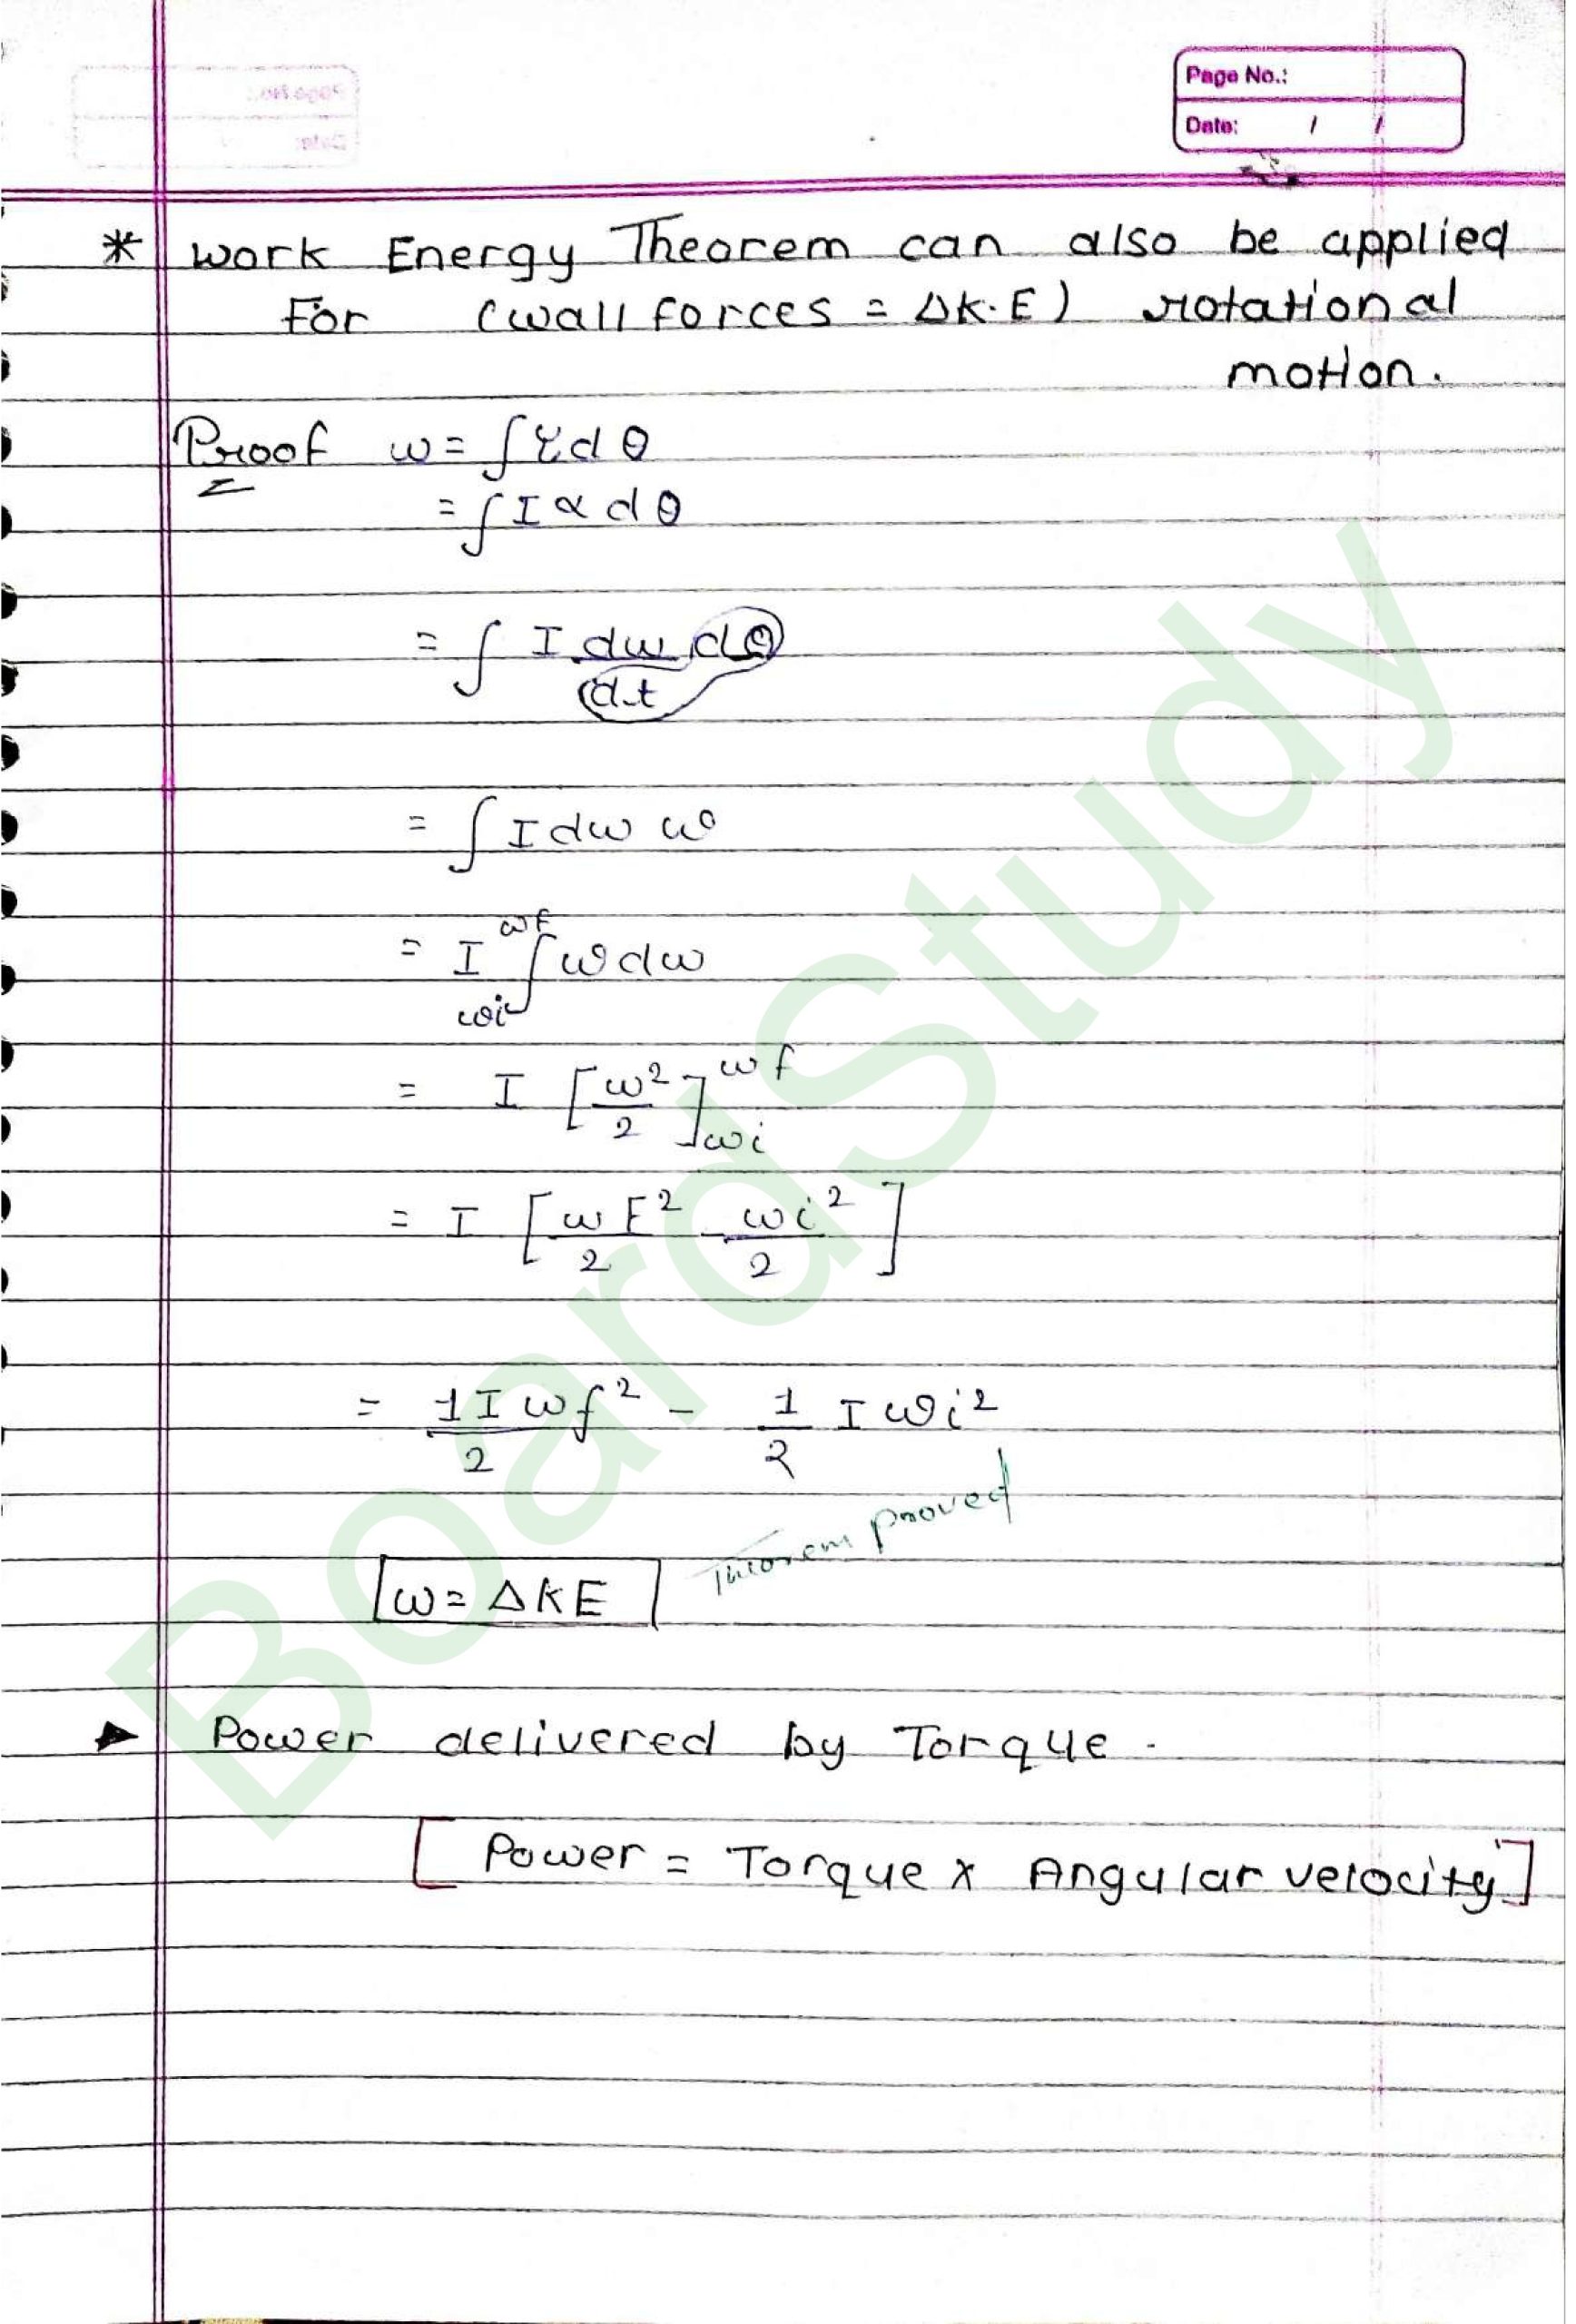 Page No.:
Date: / /
* work Energy Theorem can also be applied
For (wall forces = ΔK.E) rotational
motion.
Proof w = ∫τdθ
= ∫I α dθ
= ∫ I dω dθ / dt
= ∫ I dω ω
= I ∫ωi^ωf ω dω
= I [ω²/2]ωi^ωf
= I [ωF²/2 - ωi²/2]
= 1/2 I ωf² - 1/2 I ωi²
Theorem proved
w = ΔKE
► Power delivered by Torque.
[Power = Torque x Angular velocity]
BoardStudy